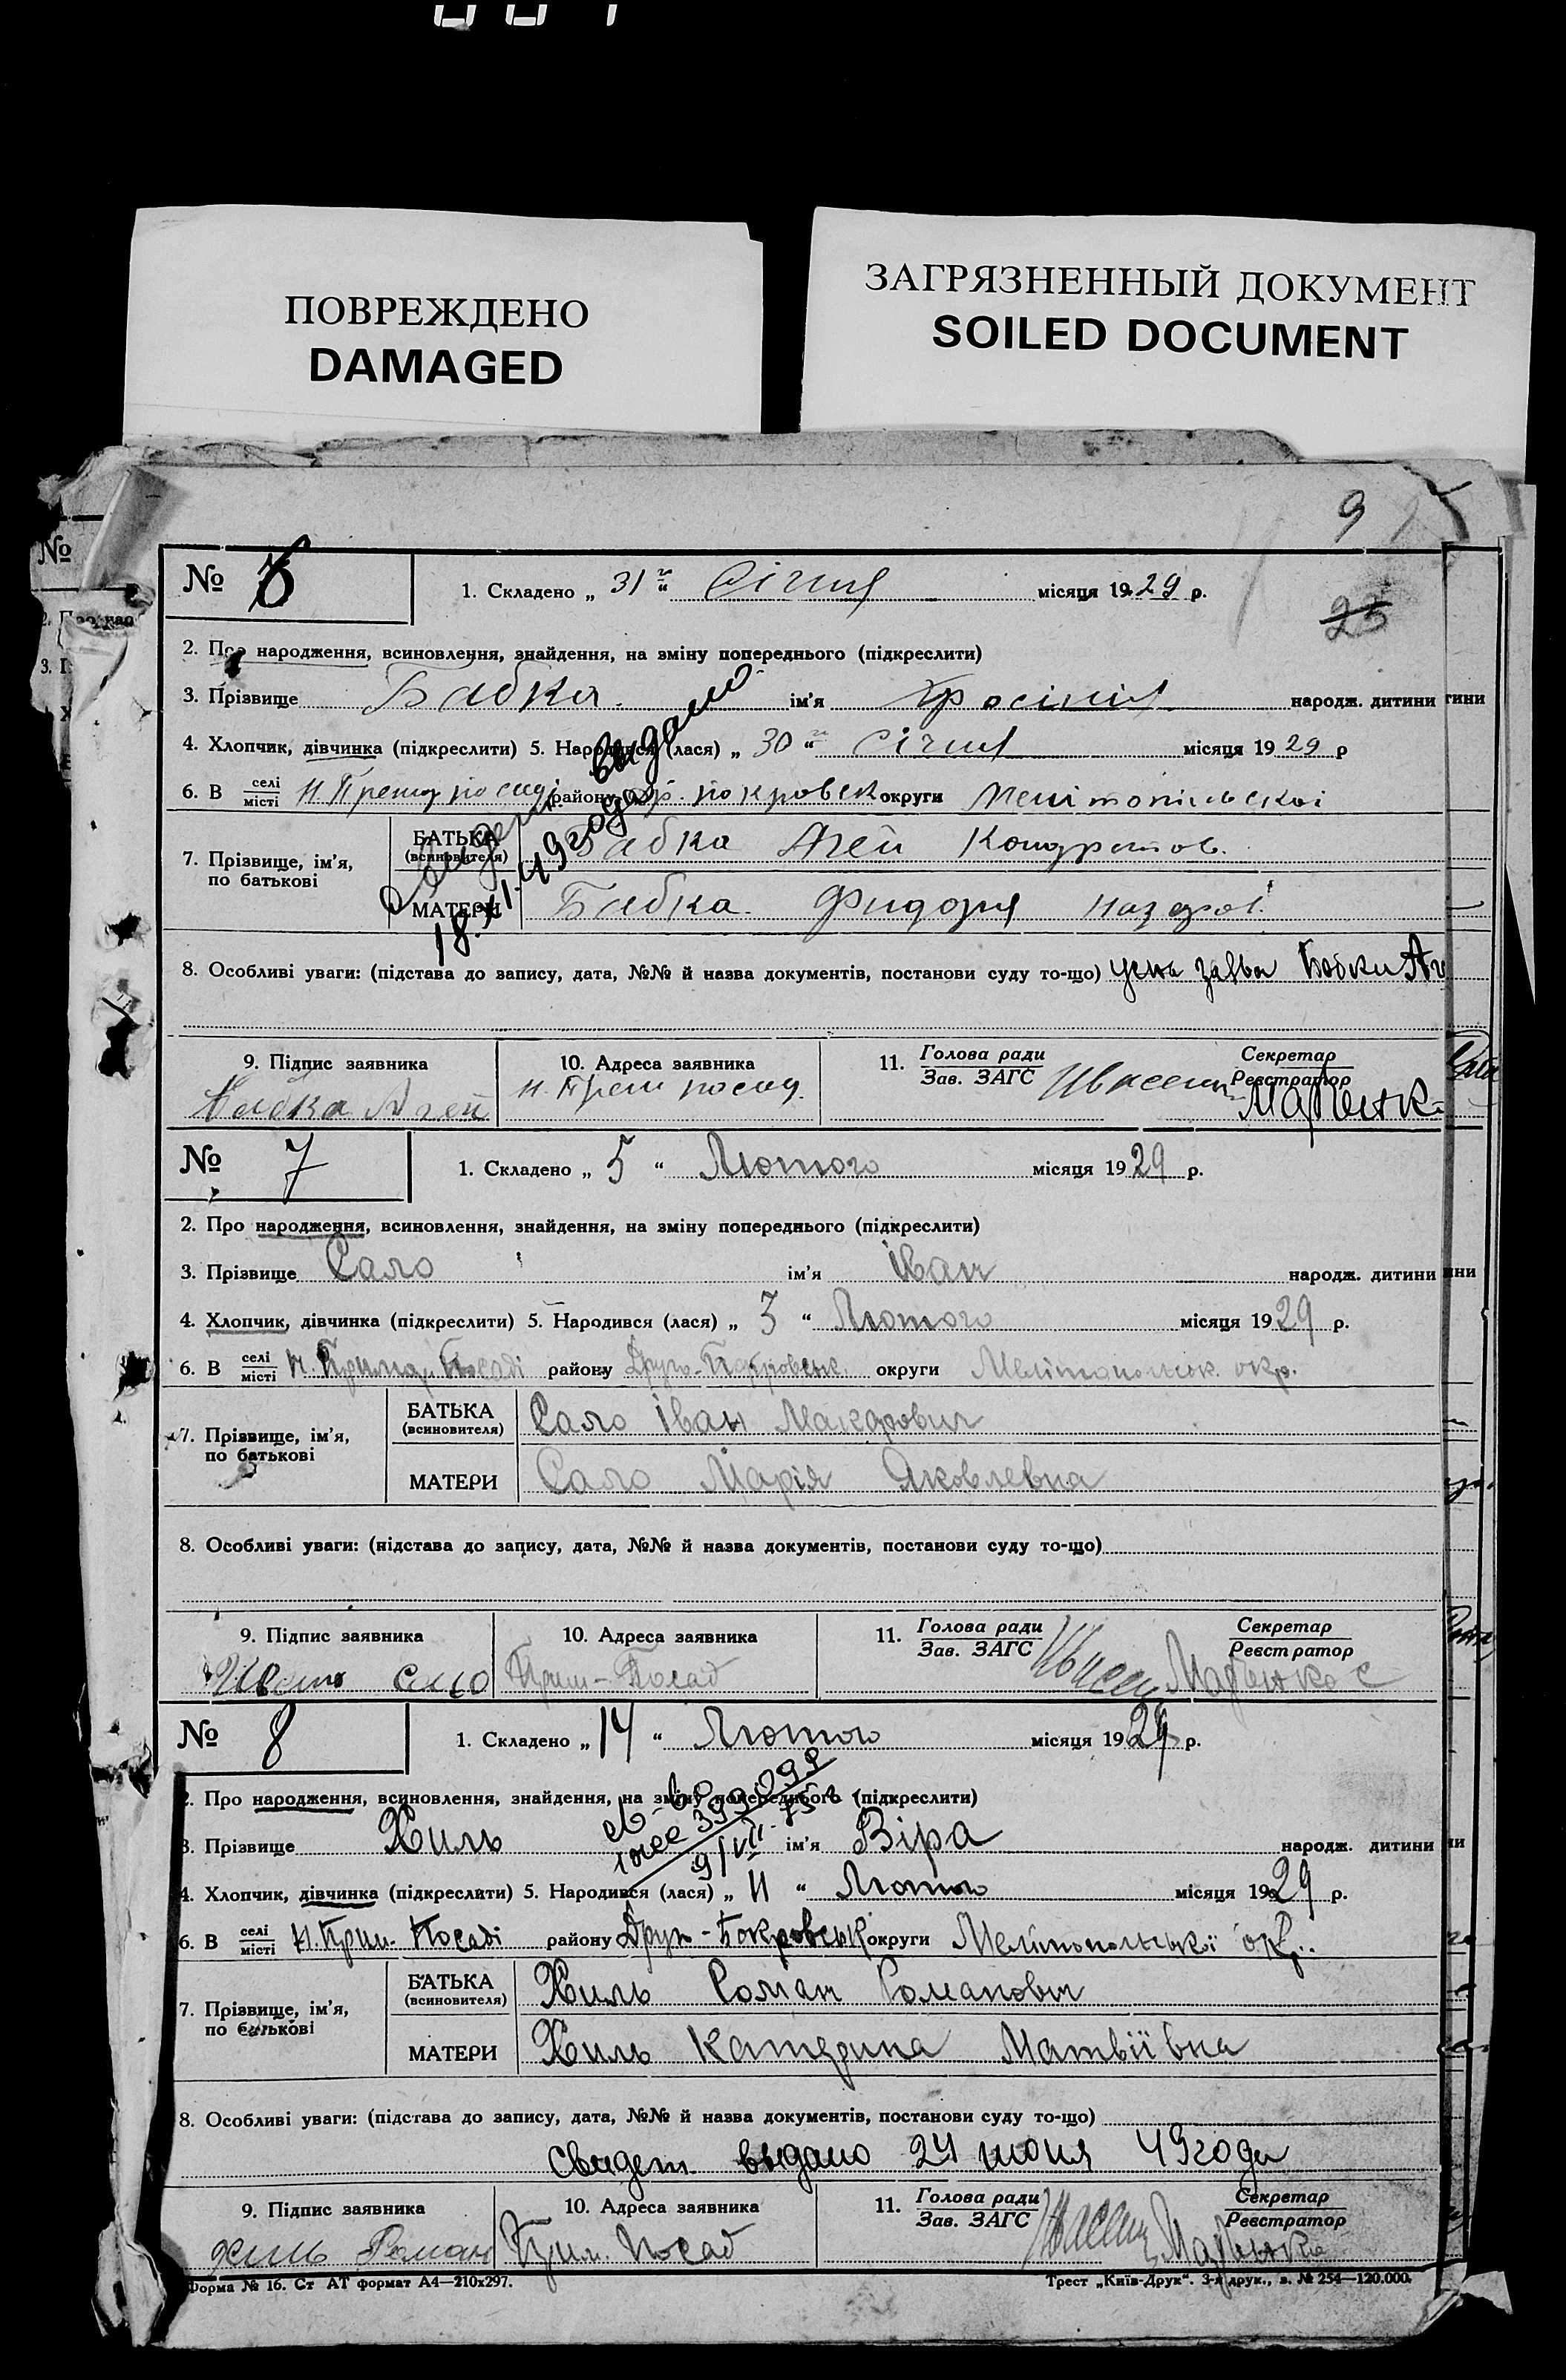 ПОВРЕЖДЕНО
DAMAGED
ЗАГРЯЗНЕННЫЙ ДОКУМЕНТ
SOILED DOCUMENT
9
25
№ 6
1. Складено „ 31 “ Січня місяця 1929 р.
2. Про народження, всиновлення, знайдення, на зміну попереднього (підкреслити)
3. Прізвище Бабка ім'я народж. дитини
4. Хлопчик, дівчинка (підкреслити) 5. Народився (лася) „ 30 “ Січня місяця 1929 р
6. В селі місті району покровськ округи
7. Прізвище, ім'я, по батькові
БАТЬКА (всиновителя) Бабка Агей Кондратов.
МАТЕРИ Бабка
выдано
18.XI.49 года
8. Особливі уваги: (підстава до запису, дата, №№ й назва документів, постанови суду то-що) заява Бабки Аг
9. Підпис заявника
Бабка Агей
10. Адреса заявника
11. Голова ради
Зав. ЗАГС
Секретар
Реєстратор
№ 7
1. Складено „ 5 “ Лютого місяця 1929 р.
2. Про народження, всиновлення, знайдення, на зміну попереднього (підкреслити)
3. Прізвище Сало ім'я Іван народж. дитини
4. Хлопчик, дівчинка (підкреслити) 5. Народився (лася) „ 3 “ Лютого місяця 1929 р.
6. В селі місті Н. Посаді району Друго-Покровськ. округи Мелітопольськ. окр.
7. Прізвище, ім'я, по батькові
БАТЬКА (всиновителя) Сало Іван Макарович
МАТЕРИ Сало Марія Яковлевна
8. Особливі уваги: (підстава до запису, дата, №№ й назва документів, постанови суду то-що)
9. Підпис заявника
Иван Сало
10. Адреса заявника
Приш-Посад
11. Голова ради
Зав. ЗАГС
Секретар
Реєстратор
№ 8
1. Складено „ 14 “ Лютого місяця 1929 р.
2. Про народження, всиновлення, знайдення, на зміну попереднього (підкреслити)
3. Прізвище Хиль ім'я Віра народж. дитини
4. Хлопчик, дівчинка (підкреслити) 5. Народився (лася) „ 11 “ Лютого місяця 1929 р.
6. В селі місті Н. Приш. Посаді району Друго-Покровськ округи Мелітопольської окр.
7. Прізвище, ім'я, по батькові
БАТЬКА (всиновителя) Хиль Роман Романович
МАТЕРИ Хиль Катерина Матвіївна
8. Особливі уваги: (підстава до запису, дата, №№ й назва документів, постанови суду то-що)
свидет. выдано 24 июня 49 года
9. Підпис заявника
Хиль Роман
10. Адреса заявника
Приш. Посад
11. Голова ради
Зав. ЗАГС
Секретар
Реєстратор
Форма № 16. Ст АТ формат А4—210х297.
Трест „Київ-Друк“. 3-я друк., з. № 254—120.000.